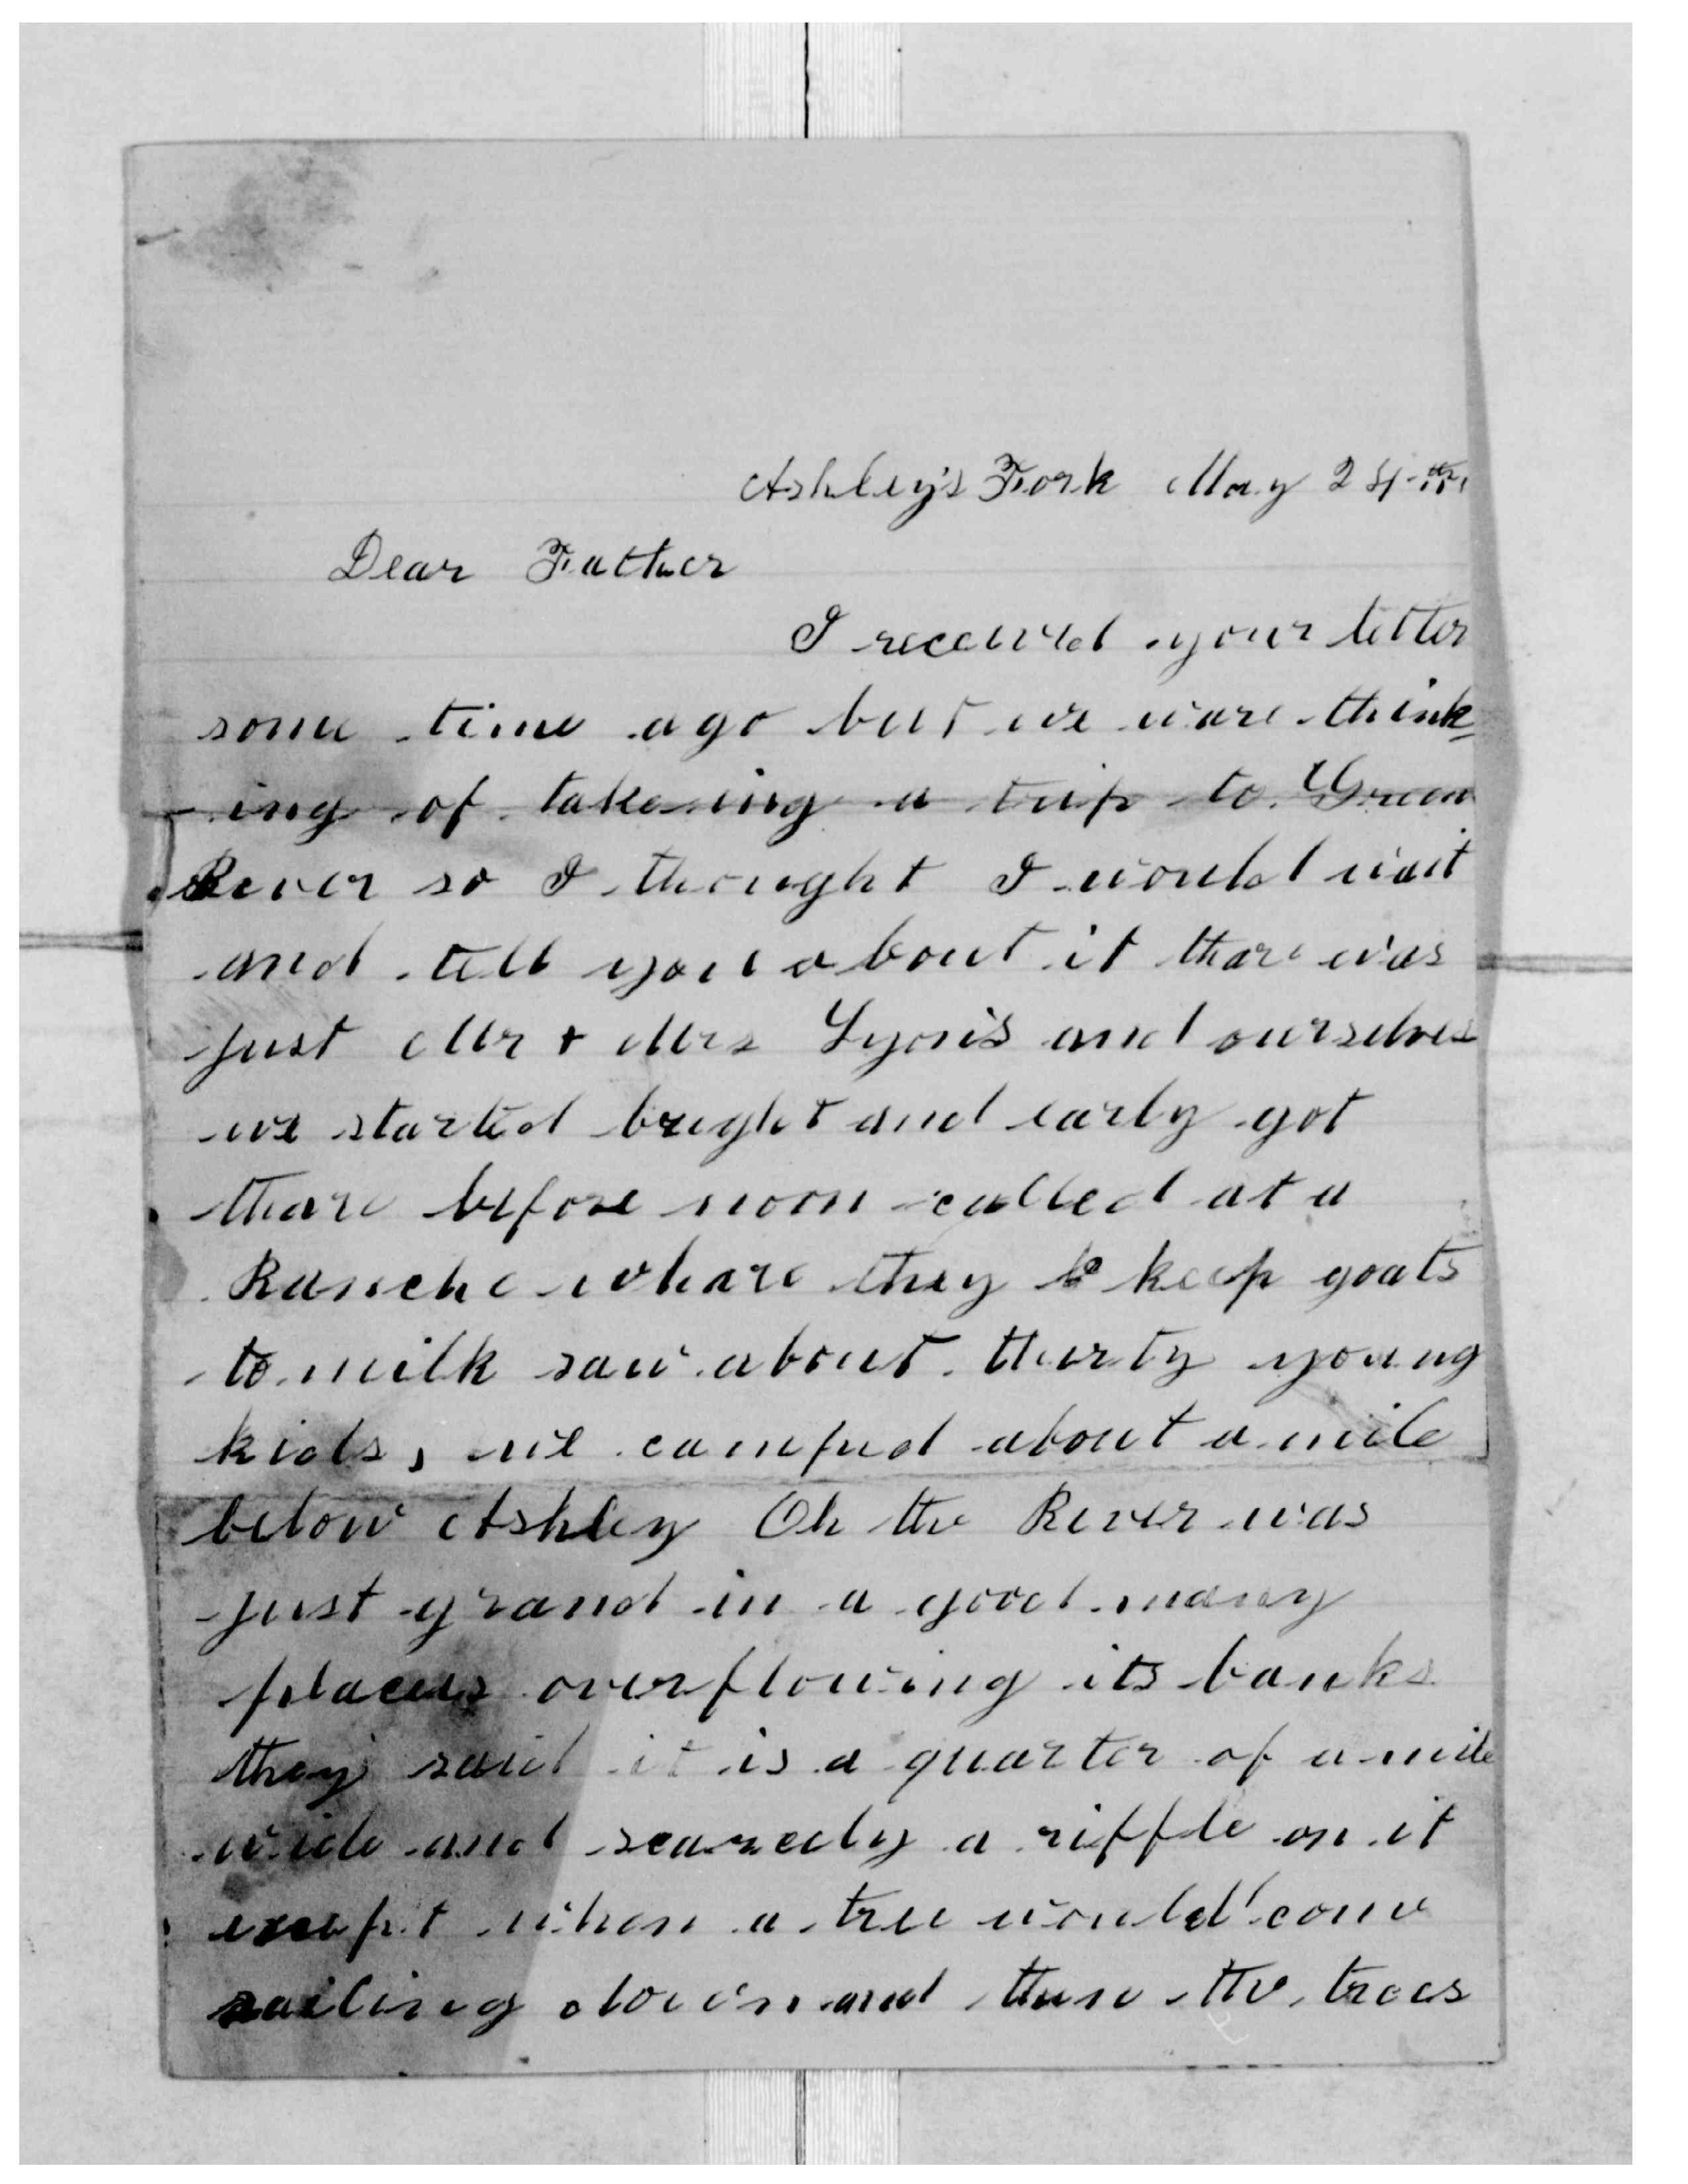 Ashley's Fork May 24th
Dear Father
I received your letter
some time ago but we ware think
ing of takeing a trip to Green
River so I thought I would wait
and tell you about it thare was
just Mr + Mrs Lyon's and ourselves
we started bright and early got
thare before noon called at a
Ranche whare they keep goats
to milk saw about thirty young
kids, we camped about a mile
below Ashley Oh the River was
just grand in a good many
places overflowing its banks
they said it is a quarter of a mile
wide and scarcely a riffle on it
except when a tree would come
sailing down and then the trees